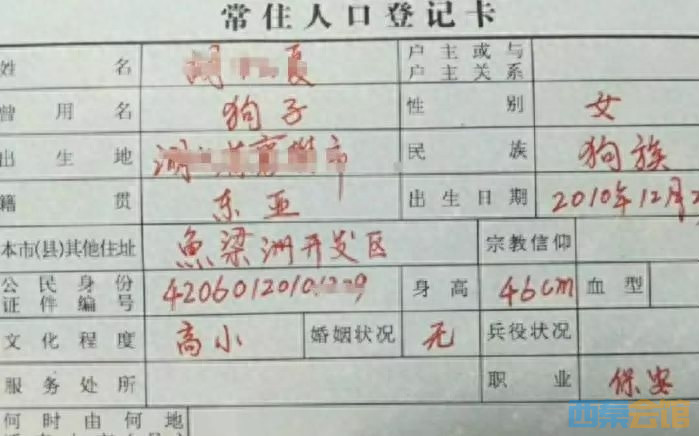 常住人口登记卡
姓名 夏 户主或与户主关系
曾用名 狗子 性别 女
出生地 市 民族 狗族
籍贯 东亚 出生日期 2010年12月
本市(县)其他住址 鱼梁洲开发区 宗教信仰
公民身份证件编号 42060120101 9 身高 46cm 血型
文化程度 高小 婚姻状况 无 兵役状况
服务处所 职业 保安
何时由何地
西集会馆